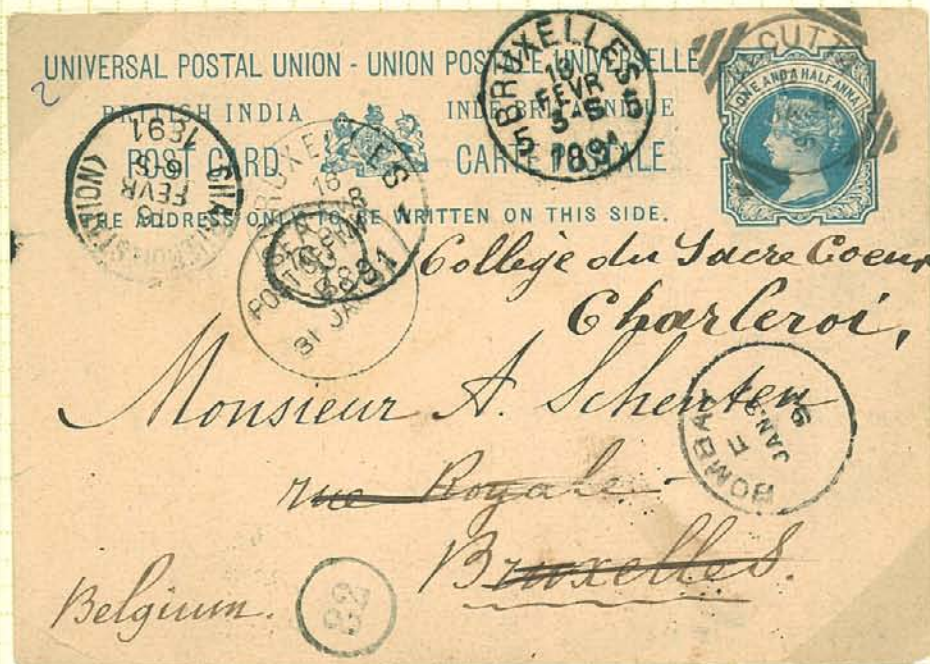 UNIVERSAL POSTAL UNION - UNION POSTALE UNIVERSELLE
BRITISH INDIA INDE BRITANNIQUE
POST CARD CARTE POSTALE
THE ADDRESS ONLY TO BE WRITTEN ON THIS SIDE.
ONE AND A HALF ANNA
BRUXELLES
18
FEVR
3-S
5 5
1891
(STATION)
13
FEVR
6-S
1891
BRUXELLES
18
1891
SEA
POST OFFICE
31 JAN
Collège du Sacre Coeur
Charleroi,
Monsieur A. Schenten
rue Royale
Bruxelles.
Belgium.
BOMBAY
F
JAN
32